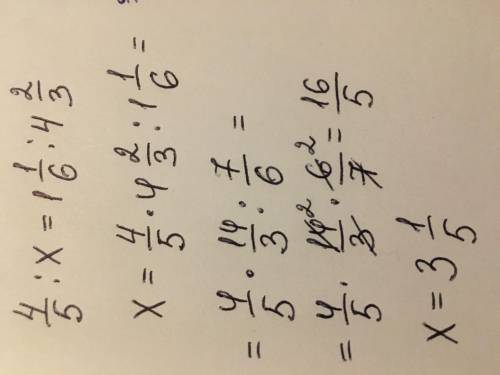 4/5 : x = 1 1/6 : 4 2/3
x = 4/5 · 4 2/3 : 1 1/6 =
= 4/5 · 14/3 : 7/6 =
= 4/5 · 14²/3 · 6²/7 = 16/5
x = 3 1/5